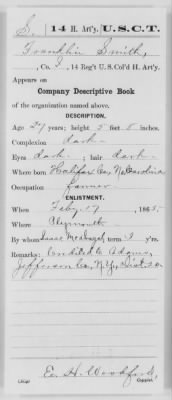 S. 14 H. Art'y. U.S.C.T.
Franklin Smith,
, Co. 14 Reg't U.S. Col'd H. Art'y.
Appears on
Company Descriptive Book
of the organization named above.
DESCRIPTION.
Age 27 years; height 5 feet 8 inches.
Complexion dark
Eyes dark; hair dark
Where born Halifax Co., N. Carolina
Occupation farmer
ENLISTMENT.
When Feby. 17, 1865.
Where Plymouth
By whom Isaac term 3 y'rs.
Remarks: Credited to Adams,
Jefferson Co., N.Y., Dist. 20
E. H. Woodford,
Copyist.